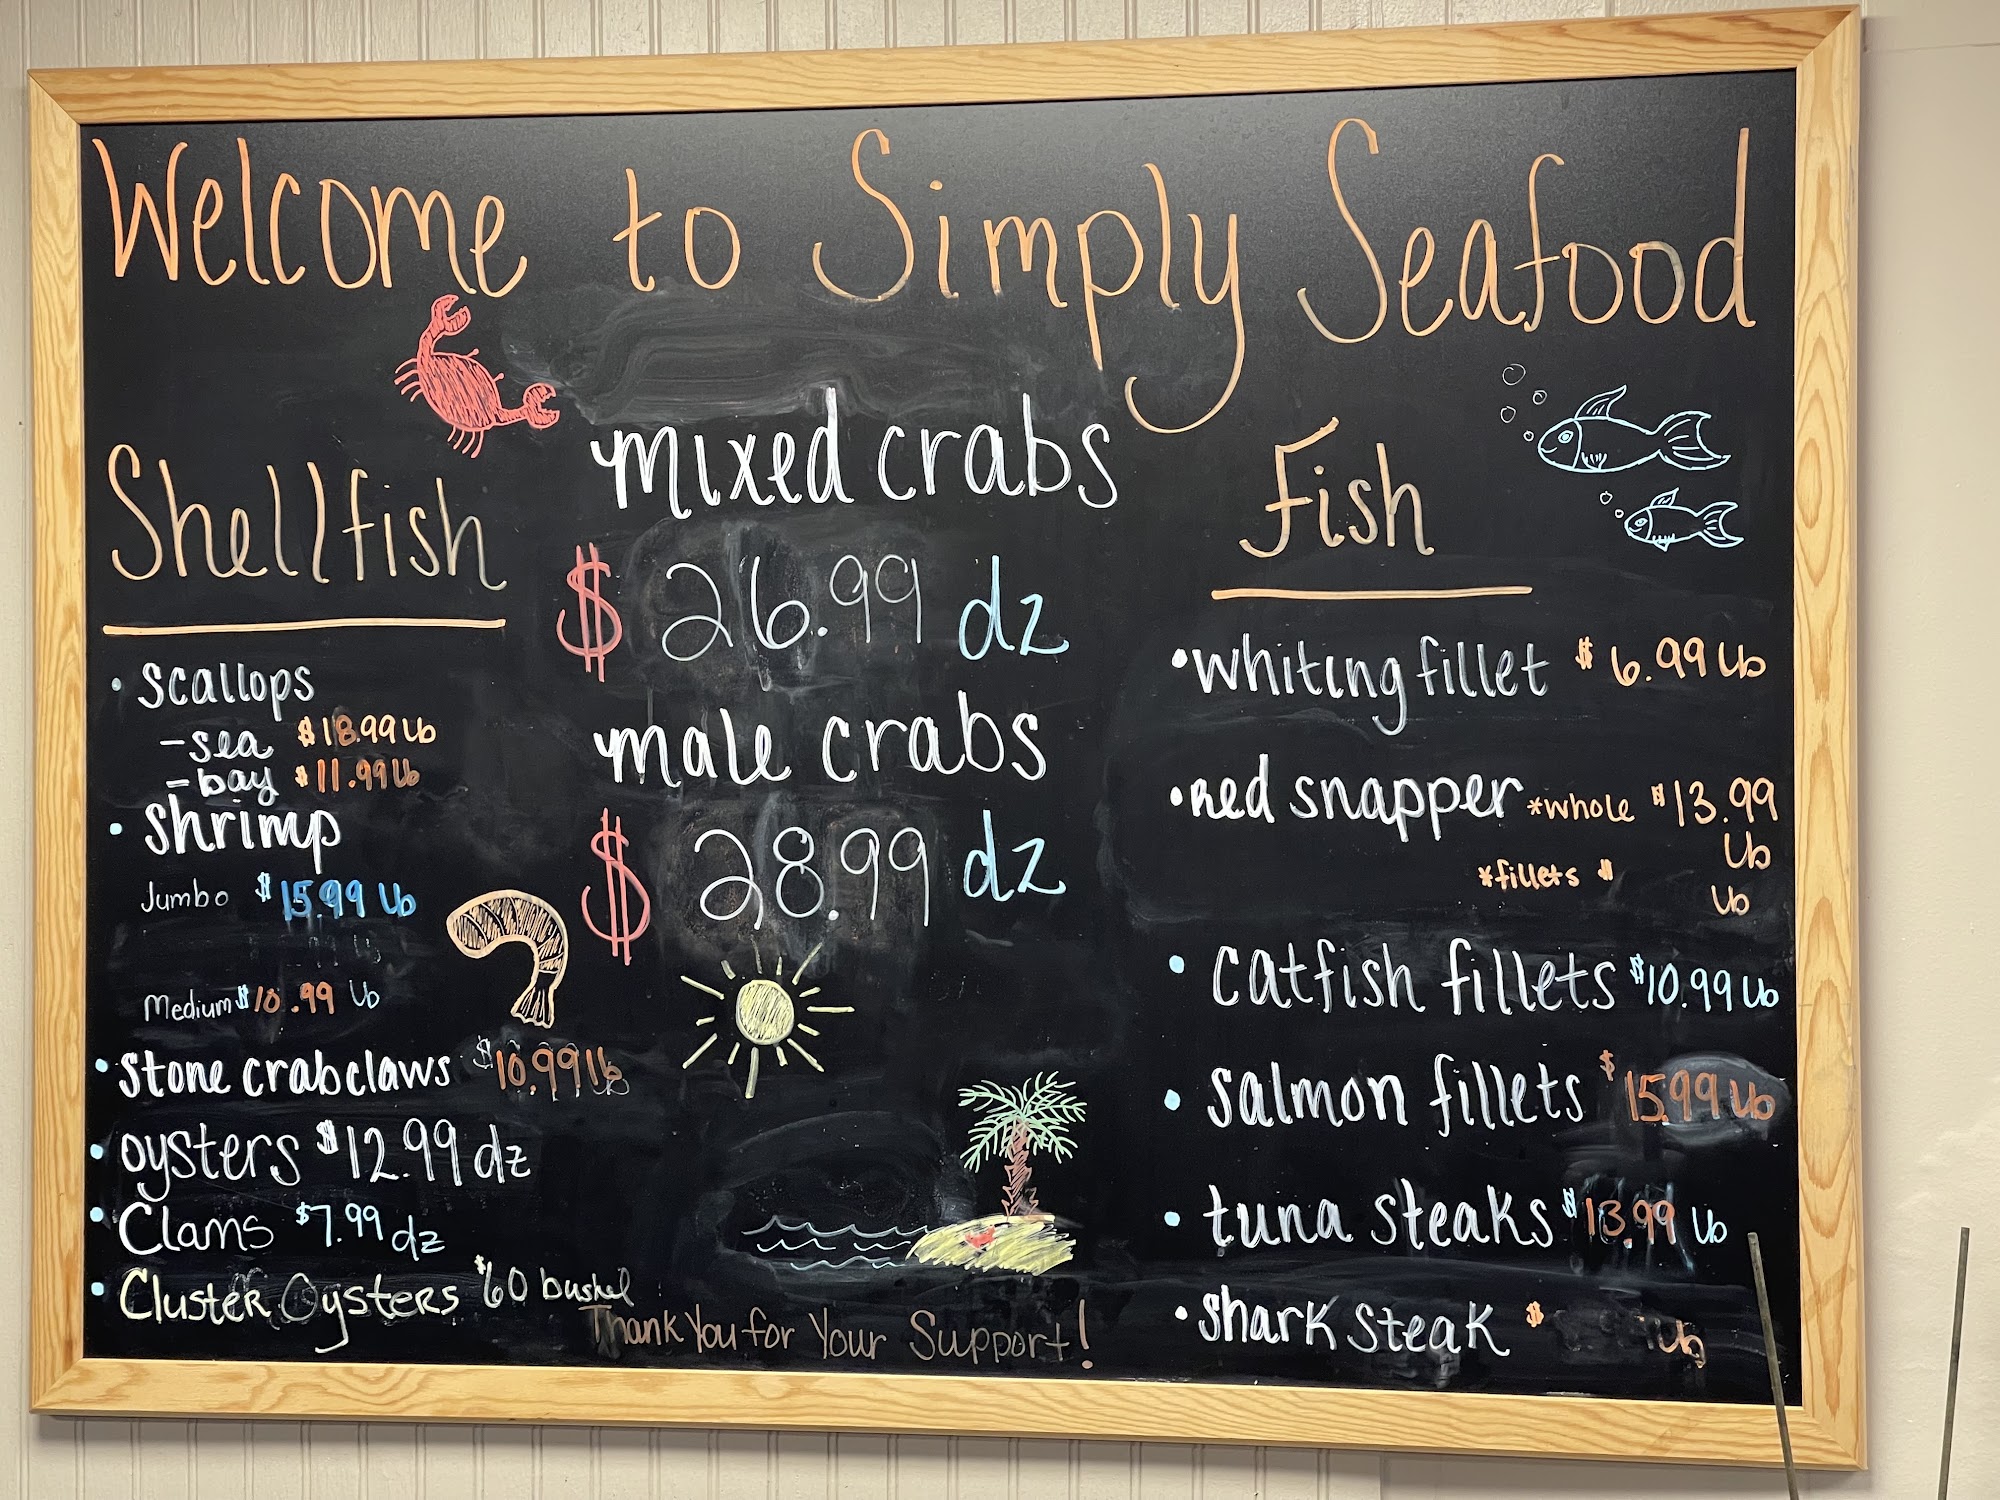 Welcome to Simply Seafood
Shellfish
• scallops
- sea $18.99 lb
- bay $11.99 lb
• shrimp
Jumbo $15.99 lb
Medium $10.99 lb
• stone crab claws $10.99 lb
• oysters $12.99 dz
• Clams $7.99 dz
• Cluster Oysters $60 bushel
mixed crabs
$26.99 dz
male crabs
$28.99 dz
Thank You for Your Support!
Fish
• whiting fillet $6.99 lb
• red snapper *whole $13.99
lb
*fillets $
lb
• catfish fillets $10.99 lb
• salmon fillets $15.99 lb
• tuna steaks $13.99 lb
• shark steak $ lb